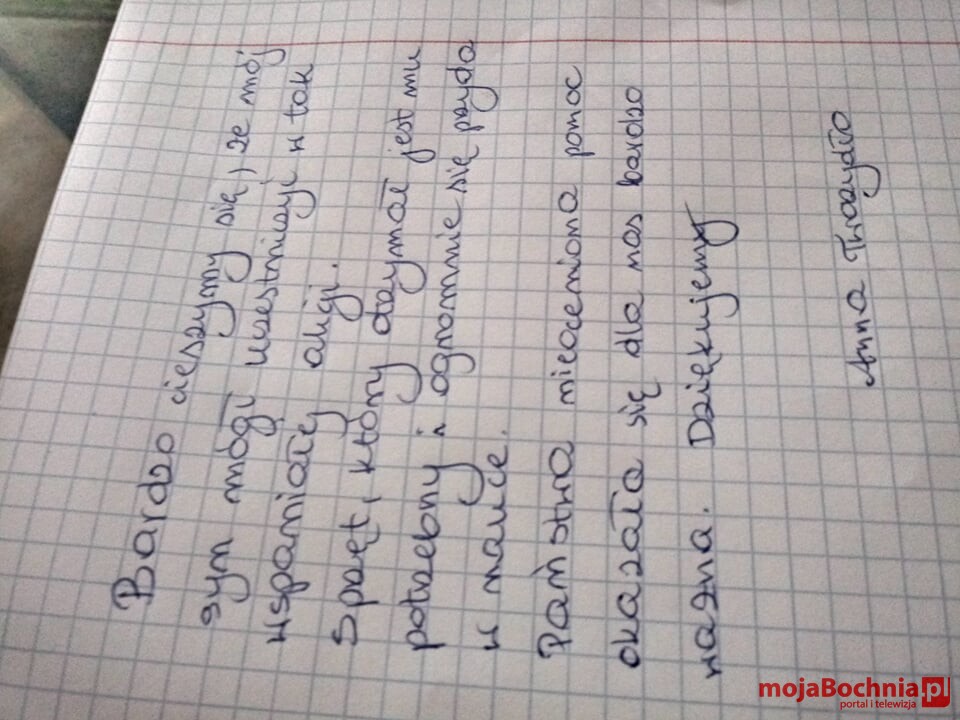 Bardzo cieszymy się, że mój
syn mógł uczestniczyć w tak
wspaniałej akcji.
Sprzęt, który otrzymał jest mu
potrzebny i ogromnie się przyda
w nauce.
Państwa nieoceniona pomoc
okazała się dla nas bardzo
ważna. Dziękujemy
Anna
mojaBochnia.pl
portal i telewizja